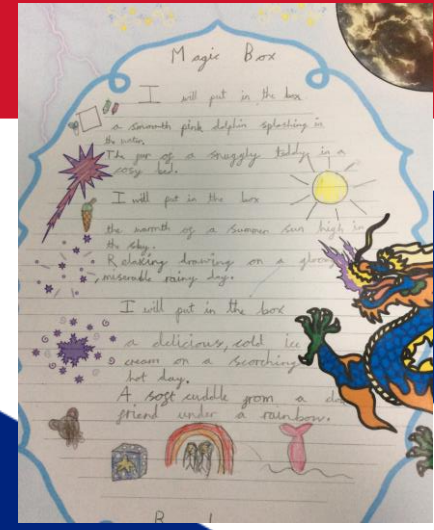 Magic Box
I will put in the box
a smooth pink dolphin splashing in
the water,
The joy of a snuggly teddy in a
cosy bed.
I will put in the box
the warmth of a summer sun high in
the sky.
Relaxing drawing on a
miserable rainy day.
I will put in the box
a delicious, cold ice
cream on a scorching
hot day.
A soft cuddle from a
friend under a rainbow.